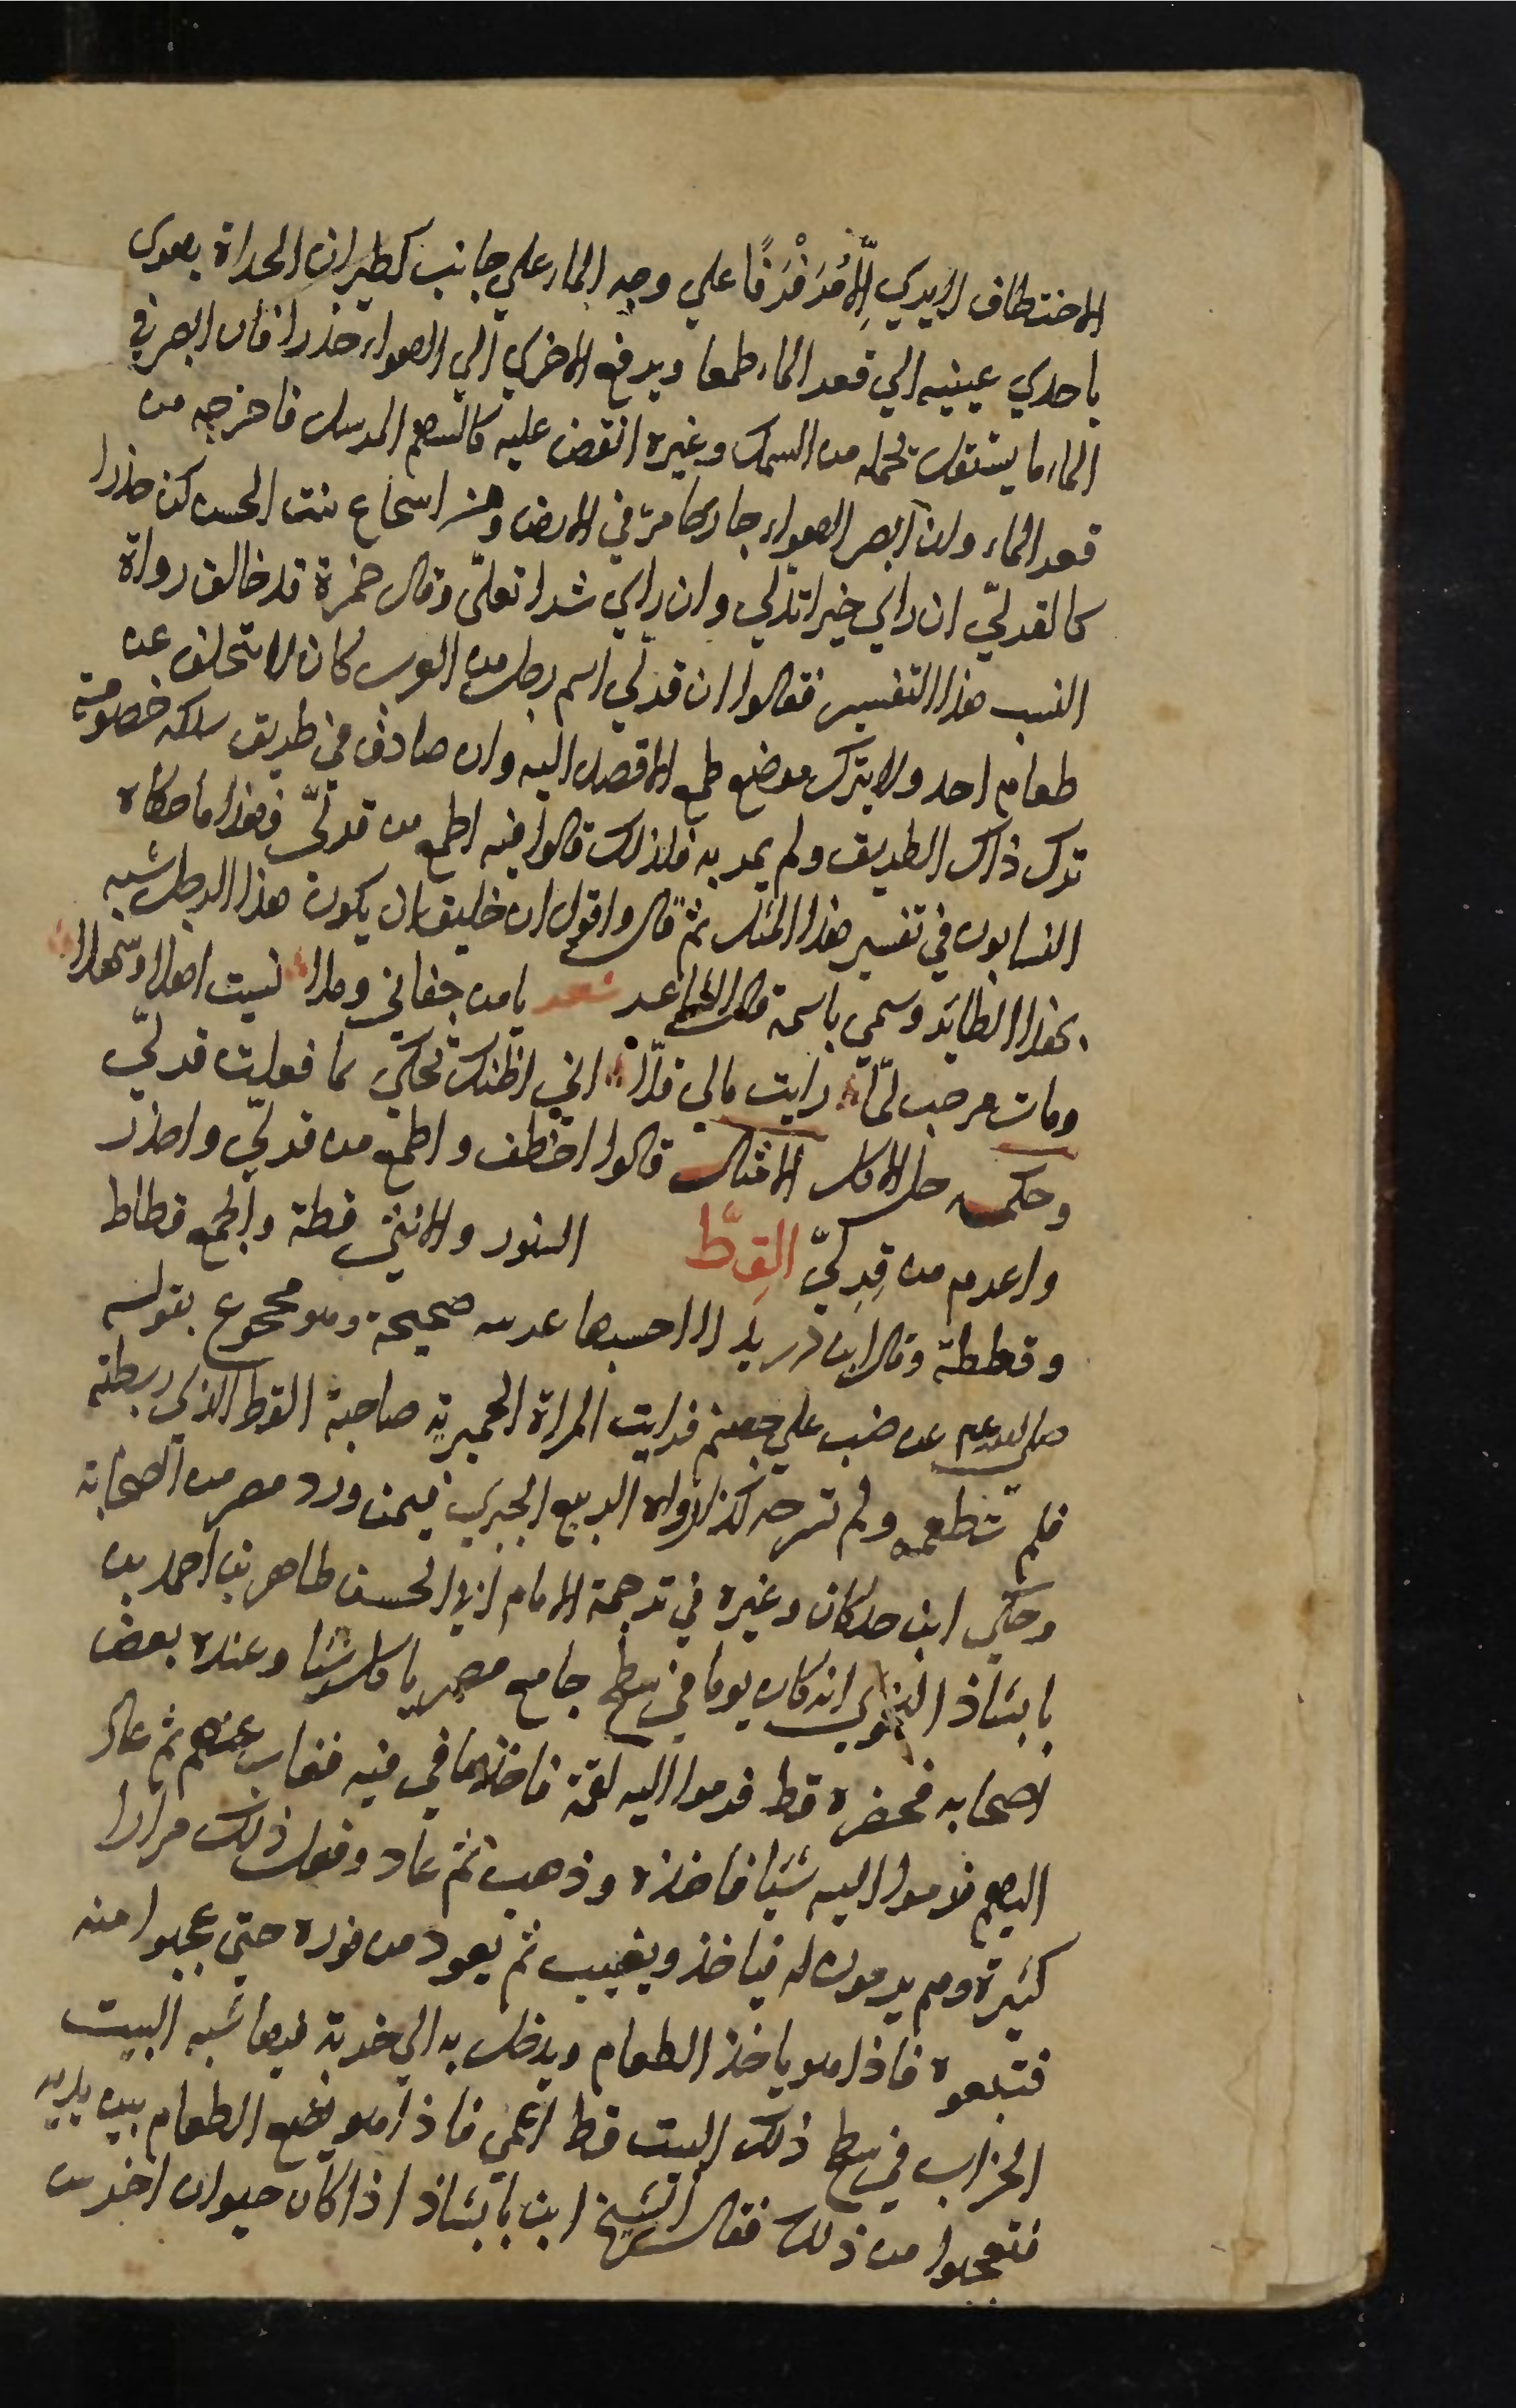 الاختطاف لا يري الا مرفرفا علي وجه الماء علي جانب كطيران الحداة يهوي
باحدي عينيه الي قعر الماء طمعا ويرفع الاخري الي الهواء حذرا فان ابصر في
الماء ما يستقل بحمله من السمك وغيره انقض عليه كالسهم المرسل فاخرجه من
قعر الماء وان ابصر في الهواء جارحا مر في الارض ومن اسجاع بنت الحسن كن حذرا
كالقرلي ان راي خيرا تدلي وان راي شرا تعلي وقال حمزة قد خالف رواة
النسب هذا التفسير فقالوا ان قرلي اسم رجل من العرب كان لا يتخلف عن
طعام احد ولا يترك موضع طمع الا قصد اليه وان صادف في طريق سلكه خصومة
ترك ذاك الطريق ولم يمر به فلذلك قالوا فيه اطمع من قرلي فهذا ما حكاه
النسابون في تفسير هذا المثل ثم قال واقول ان خليق ان يكون هذا الرجل شبه
بهذا الطائر وسمي باسمه قال الشاعر شعر يا من جفاني وملا نسيت اهلا وسهلا
ومات مرحب لما رايت مالي قلا اني اظنك تحكي بما فعلت قرلي
وحكمه حل الاكل الامثال قالوا اخطف واطمع من قرلي واحذر
واعدم من قرلي القط السنور والانثي قطة والجمع قطاط
وقططة وقال ابن دريد لا احسبها عربية صحيحة وهو محجوج بقوله
صلى الله عليه وسلم عرضت علي جهنم فرايت المراة الحميرية صاحبة القط الذي ربطته
فلم تطعمه ولم تسرحه كذا رواه الربيع الجيزي فيمن ورد مصر من الصحابة
وحكي ابن خلكان وغيره في ترجمة الامام ابي الحسن طاهر بن احمد بن
بابشاذ النحوي انه كان يوما في سطح جامع مصر ياكل شيا وعنده بعض
اصحابه فحضره قط فرموا اليه لقمة فاخذها في فيه فغاب عنهم ثم عاد
اليهم فرموا اليه شيا فاخذه وذهب ثم عاد وفعل ذلك مرارا
كثيرة وهم يرمون له فياخذ ويغيب ثم يعود من فوره حتي عجبوا منه
فتبعوه فاذا هو ياخذ الطعام ويدخل به الي خربة فيها شبه البيت
الخراب في سطح ذلك البيت قط اعمي فاذا هو يضع الطعام بين يديه
فتعجبوا من ذلك فقال الشيخ ابن بابشاذ اذا كان حيوان اخرس